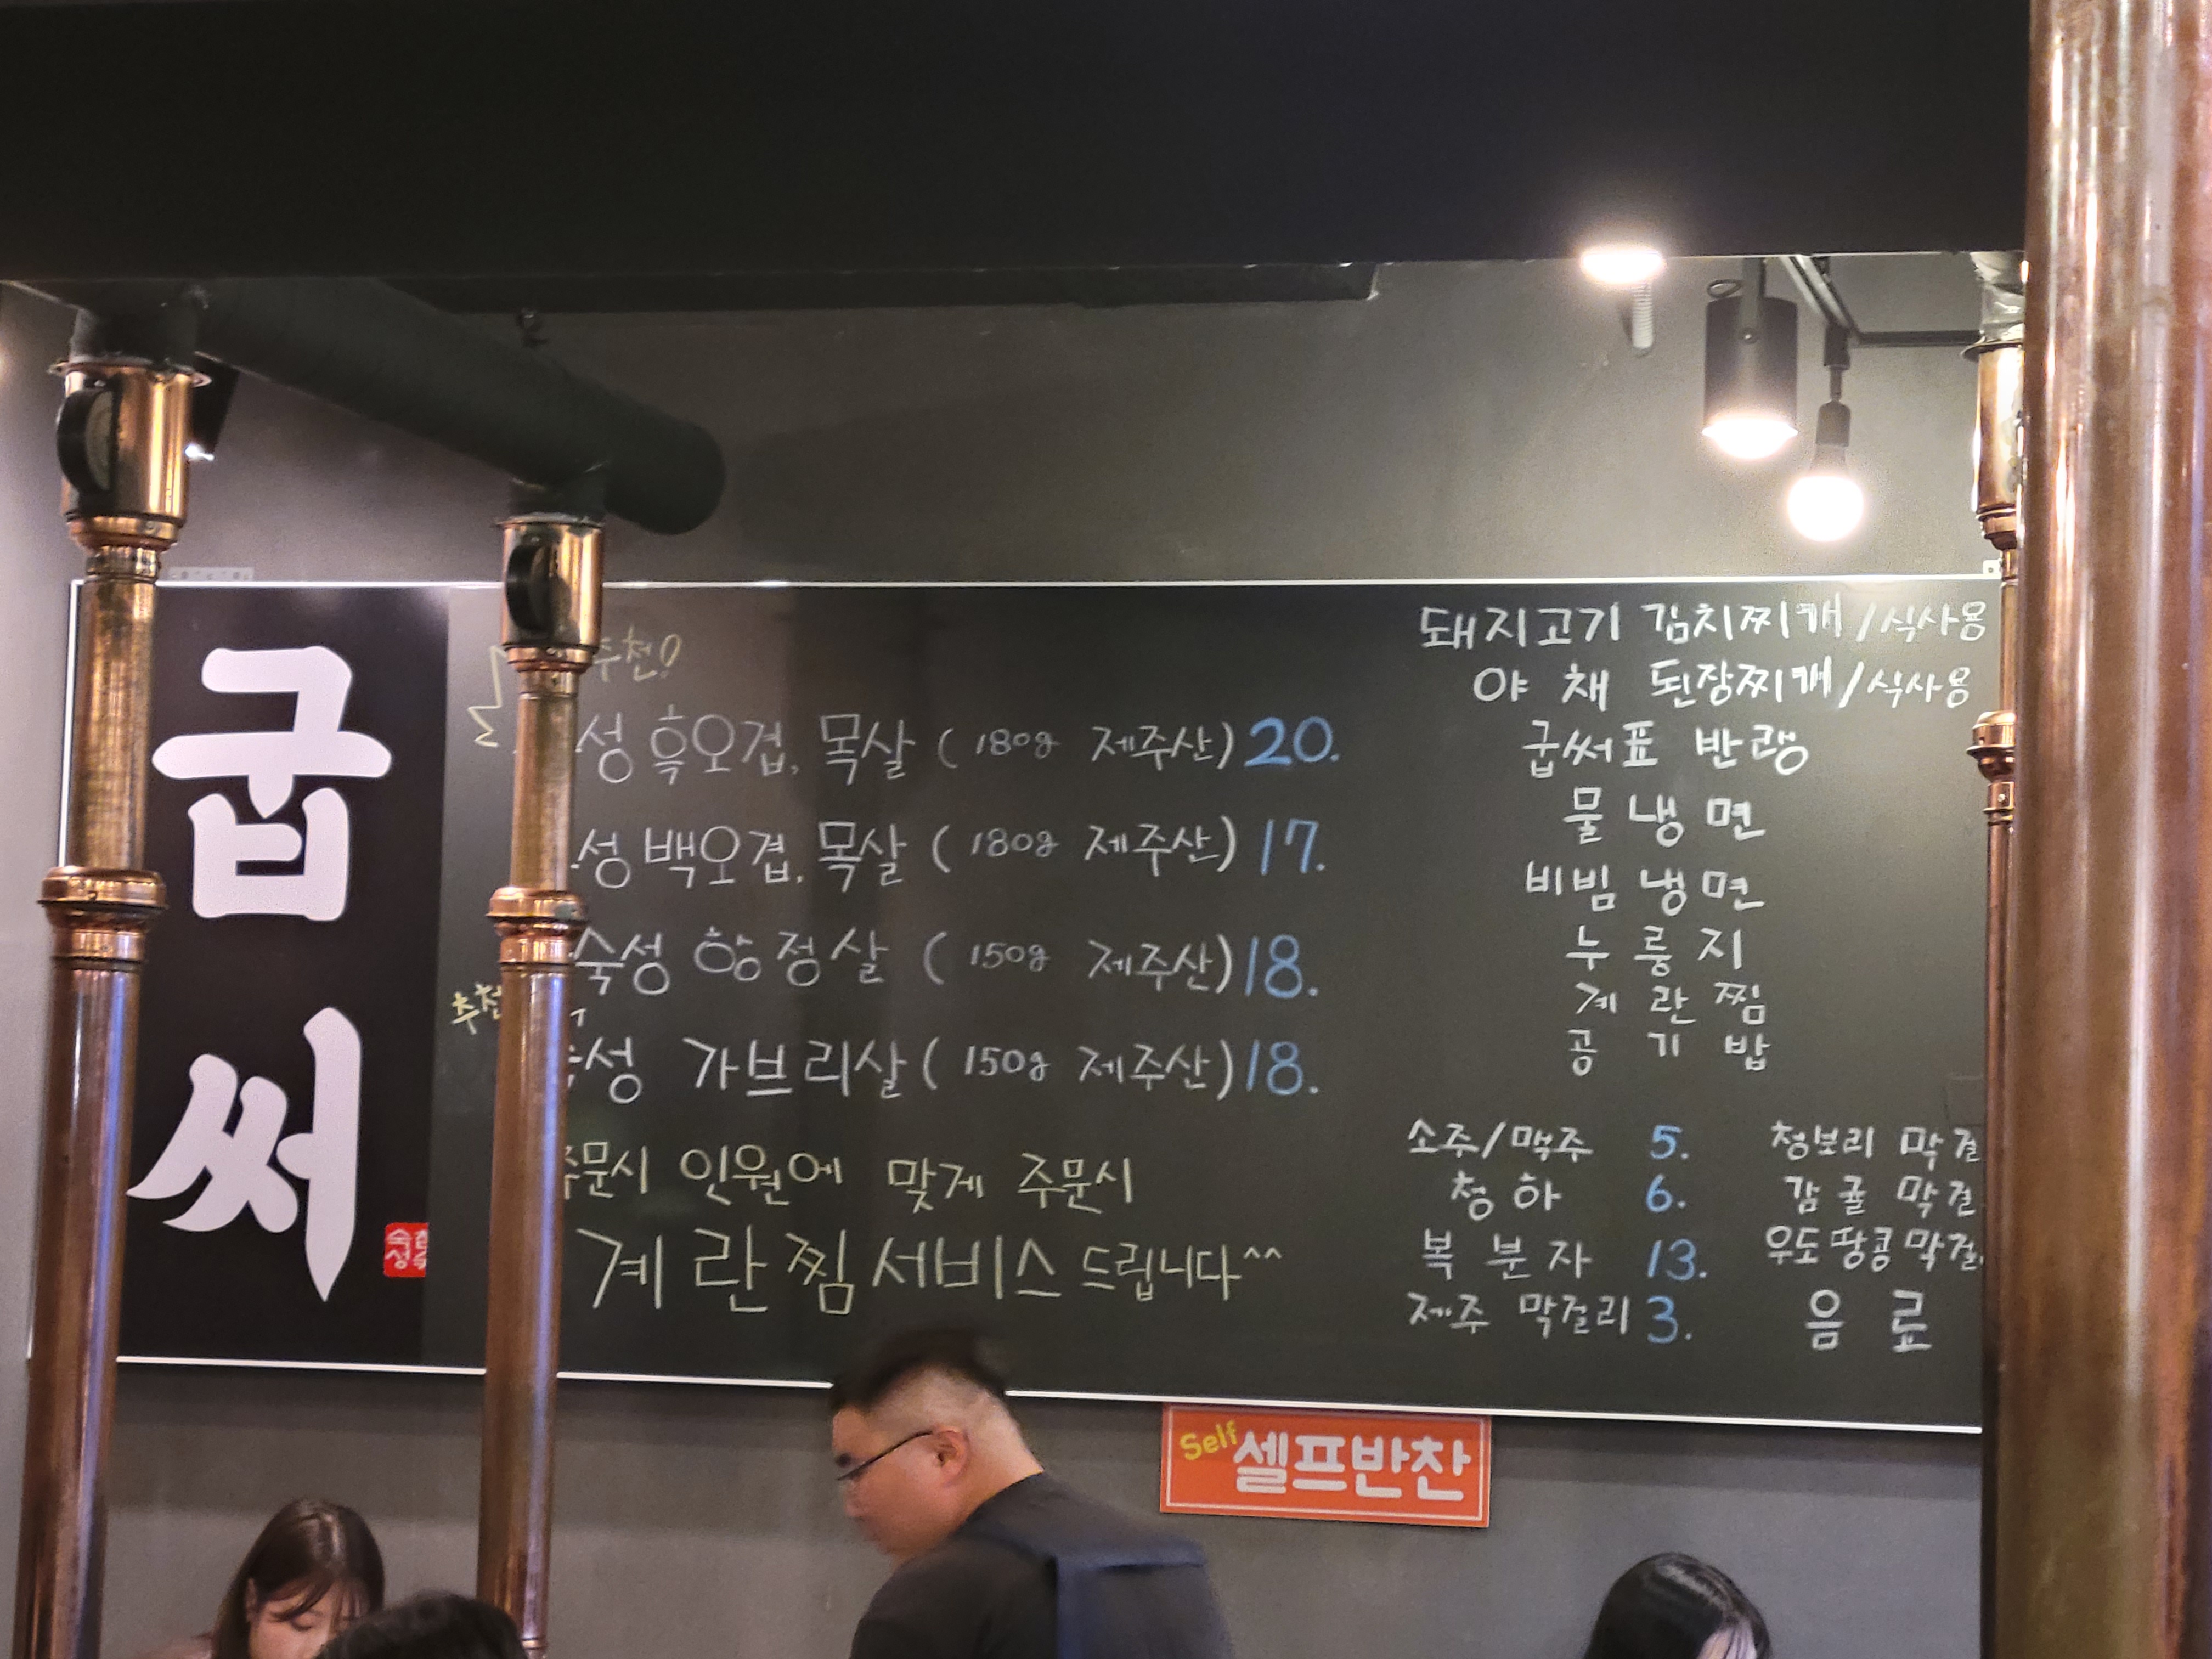 굽써
추천!
성 흑오겹, 목살 ( 180g 제주산) 20.
성 백오겹, 목살 ( 180g 제주산) 17.
숙성 항정살 ( 150g 제주산) 18.
추천
성 가브리살 ( 150g 제주산) 18.
주문시 인원에 맞게 주문시
계란찜 서비스 드립니다^^
돼지고기 김치찌개 /식사용
야채 된장찌개/식사용
굽써표 반랭
물냉면
비빔냉면
누룽지
계란찜
공기밥
소주/맥주 5.
청하 6.
복분자 13.
제주 막걸리 3.
청보리 막걸
감귤 막걸
우도땅콩막걸
음료
숙성
Self 셀프반찬